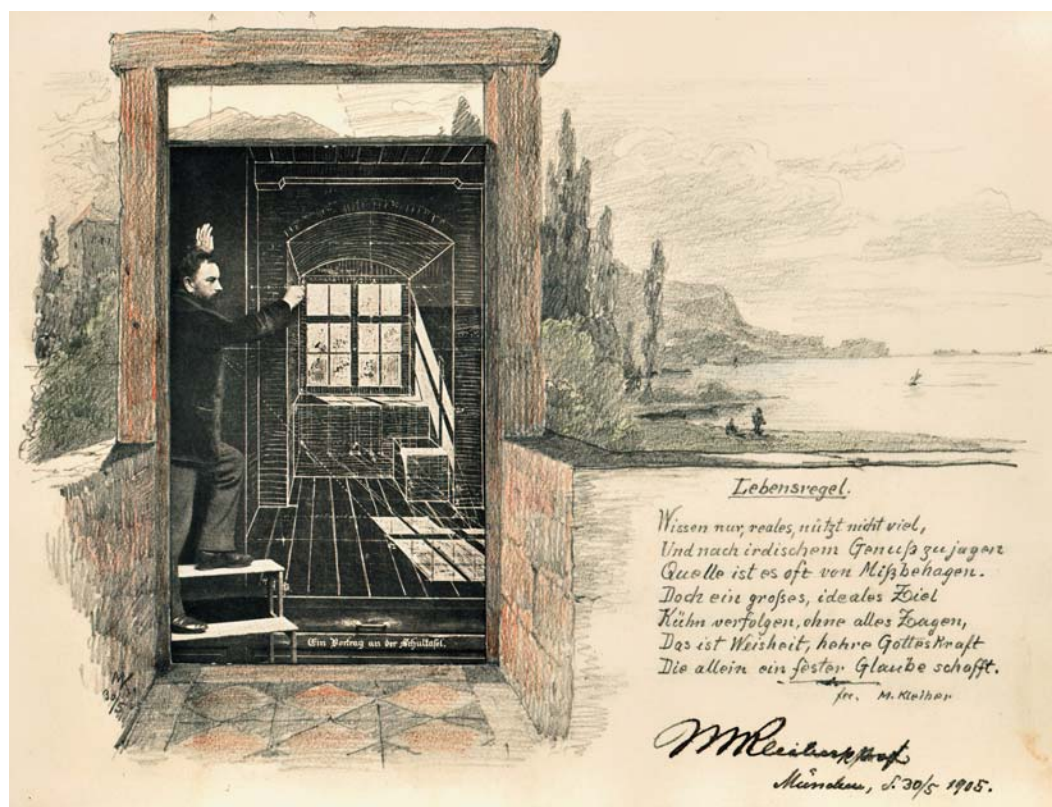 Ein Vortrag an der Schultafel.
30/5
Lebensregel.
Wissen nur, reales, nützt nicht viel,
Und nach irdischem Genuß zu jagen
Quelle ist es oft von Mißbehagen.
Doch ein großes, ideales Ziel
Kühn verfolgen, ohne alles Zagen,
Das ist Weisheit, hehre Gotteskraft
Die allein ein fester Glaube schafft.
M. Kleiber
MKleiber
München, d. 30/5 1905.